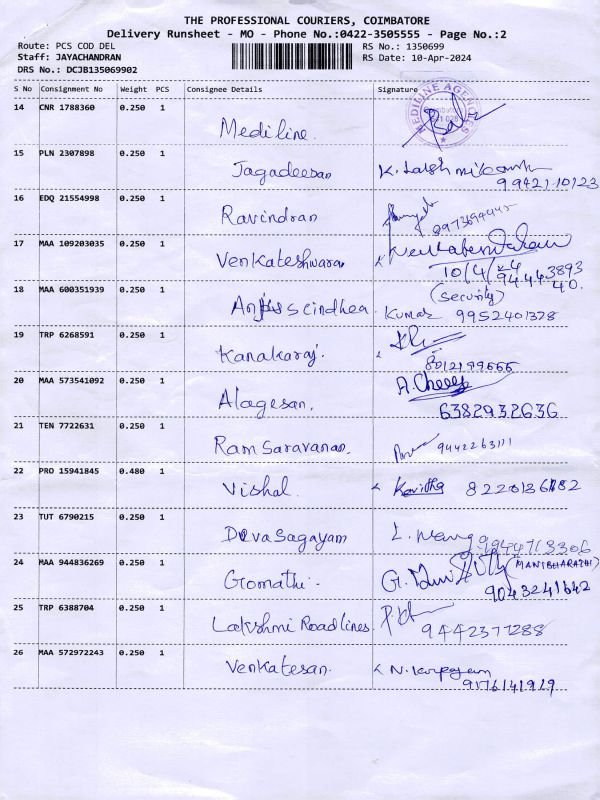 THE PROFESSIONAL COURIERS, COIMBATORE
Delivery Runsheet - MO - Phone No.:0422-3505555 - Page No.:2
Route: PCS COD DEL RS No.: 1350699
Staff: JAYACHANDRAN RS Date: 10-Apr-2024
DRS No.: DCJB135069902
S No Consignment No Weight PCS Consignee Details Signature
14 CNR 1788360 0.250 1
MEDILINE AGENCIES
Mediline.
15 PLN 2307898 0.250 1
Jagadeesan
9942110123
16 EDQ 21554998 0.250 1
Ravindran
17 MAA 109203035 0.250 1
Venkateshwaran
10/4/24
94443893
40.
18 MAA 600351939 0.250 1
(Security)
scindhea. Kumar 9952401378
19 TRP 6268591 0.250 1
Kanakaraj.
8012199666
20 MAA 573541092 0.250 1
Alagesan.
6382932636
21 TEN 7722631 0.250 1
Ram Saravanan. 9442263111
22 PRO 15941845 0.480 1
Vishal. Kavitha
23 TUT 6790215 0.250 1
Devasagayam
9944713306
24 MAA 944836269 0.250 1
Gomathi. (MANIBHARATHI)
9043241642
25 TRP 6388704 0.250 1
Lakshmi Roadlines.
9442377288
26 MAA 572972243 0.250 1
Venkatesan.
9176141919